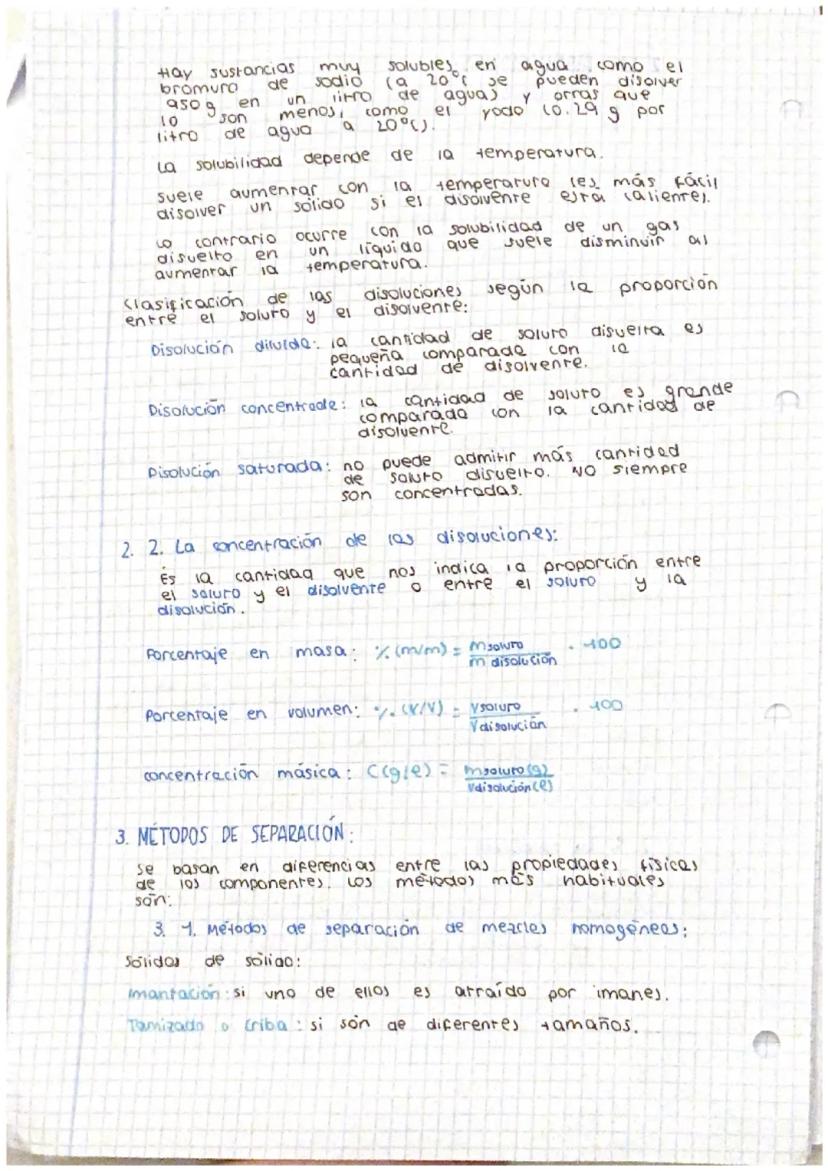 Hay sustancias muy solubles en agua como el
bromuro de sodio (a 20°C se pueden disolver
950 g en un litro de agua) y otras que
lo son menos, como el yodo (0.29 g por
litro de agua a 20°C).
La solubilidad depende de la temperatura.
Suele aumentar con la temperatura (es más fácil
disolver un sólido si el disolvente esta caliente).
Lo contrario ocurre con la solubilidad de un gas
disuelto en un líquido que suele disminuir al
aumentar la temperatura.
Clasificación de las disoluciones según la proporción
entre el soluto y el disolvente:
Disolución diluida: la cantidad de soluto disuelta es
pequeña comparada con la
cantidad de disolvente.
Disolución concentrada: la cantidad de soluto es grande
comparada con la cantidad de
disolvente.
Disolución saturada: no puede admitir más cantidad
de soluto disuelto. No siempre
son concentradas.
2. 2. La concentración de las disoluciones:
Es la cantidad que nos indica la proporción entre
el soluto y el disolvente o entre el soluto y la
disolución.
Porcentaje en masa: % (m/m) = m soluto / m disolución · 100
Porcentaje en volumen: % (V/V) = V soluto / V disolución · 100
concentración másica: C(g/l) = m soluto (g) / V disolución (l)
3. MÉTODOS DE SEPARACIÓN:
Se basan en diferencias entre las propiedades físicas
de los componentes. Los métodos más habituales
són:
3. 1. Métodos de separación de mezclas homogéneas:
Sólidos de sólido:
Imantación: si uno de ellos es atraído por imanes.
Tamizado o criba: si són de diferentes tamaños.